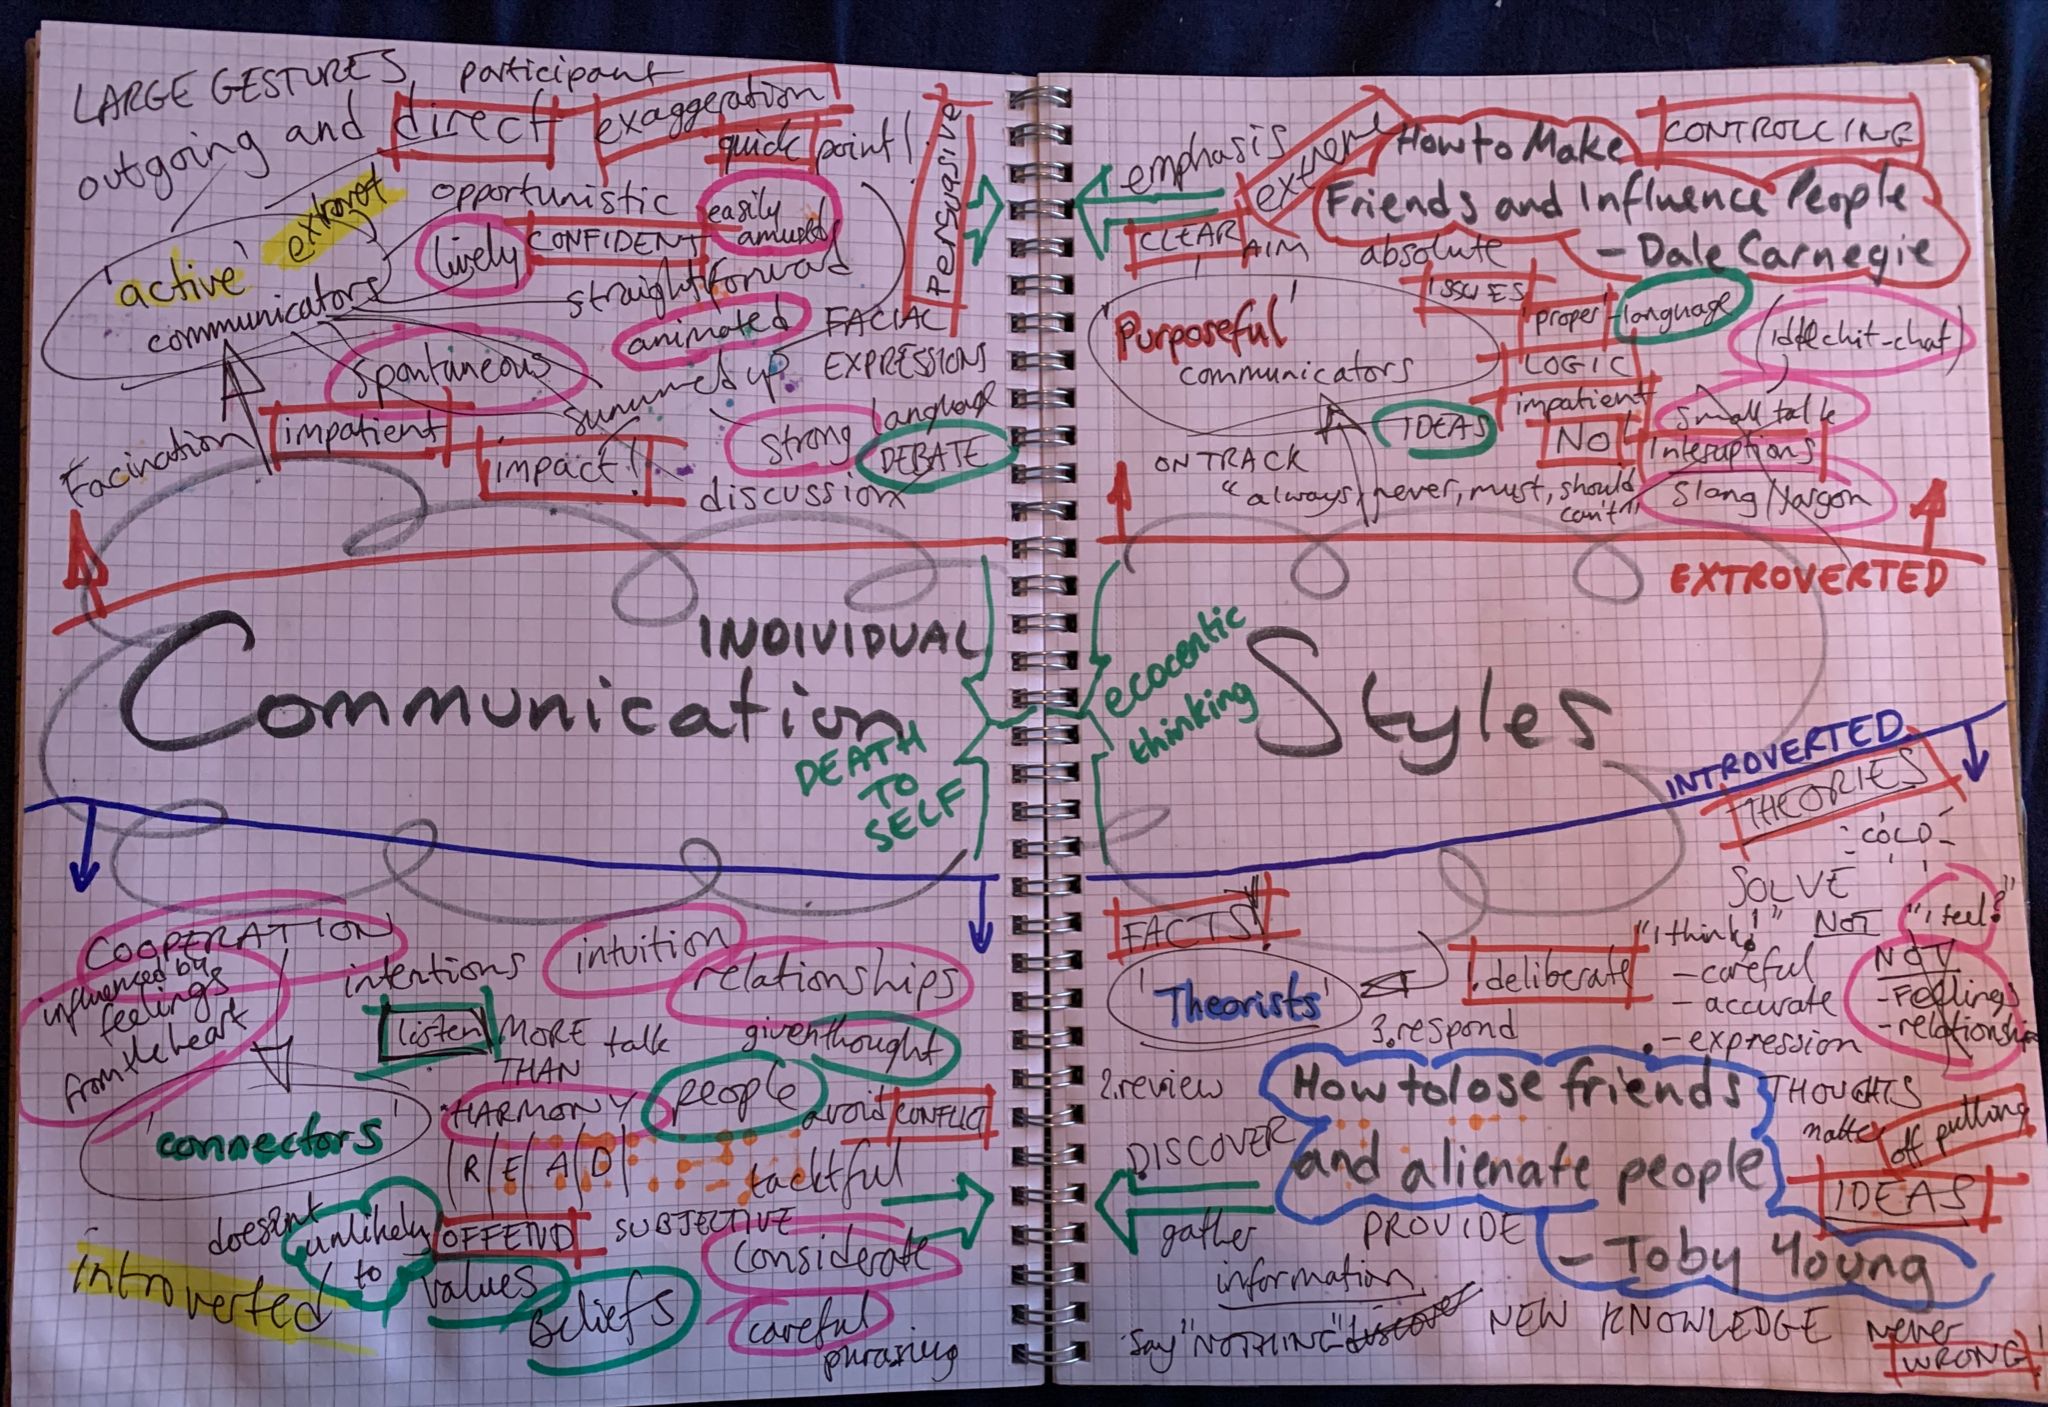 LARGE GESTURES
participant
outgoing and direct
exaggeration
quick point!
Persuasive
extrovet
opportunistic
easily
amused
'active'
communicators
lively
CONFIDENT
straightforward
animated
FACIAL
EXPRESSIONS
spontaneous
summed up
Facination
impatient
impact!
strong language
DEBATE
discussion
emphasis
extreme
How to Make
Friends and Influence People
- Dale Carnegie
CONTROLLING
CLEAR AIM
absolute
ISSUES
'Purposeful'
communicators
proper language
idle chit-chat
LOGIC
impatient
small talk
IDEAS
NO!
Interuptions
ON TRACK
"always, never, must, should
can't"
slang/Jargon
EXTROVERTED
INDIVIDUAL
Communication
DEATH
TO
SELF
ecocentic
thinking
Styles
INTROVERTED
COOPERATION
influenced by
feelings
from the heart
intentions
intuition
relationships
listen MORE
THAN
talk
given thought
HARMONY
people
avoid CONFLICT
'connectors'
READ
tacktful
doesant
unlikely
to
OFFEND
SUBJECTIVE
considerate
introverted
values
Beliefs
careful
phrasing
THEORIES
-COLD-
SOLVE
FACTS!
"I think!"
NOT
"I feel?"
'Theorists'
deliberate
- careful
- accurate
- expression
NOT
- Feelings
- relationships
3. respond
2. review
How to lose friends
and alienate people
- Toby Young
THOUGHTS
matter
off putting
IDEAS
DISCOVER
gather
information
PROVIDE
NEW KNOWLEDGE
say "NOTHING" discover
never
WRONG!